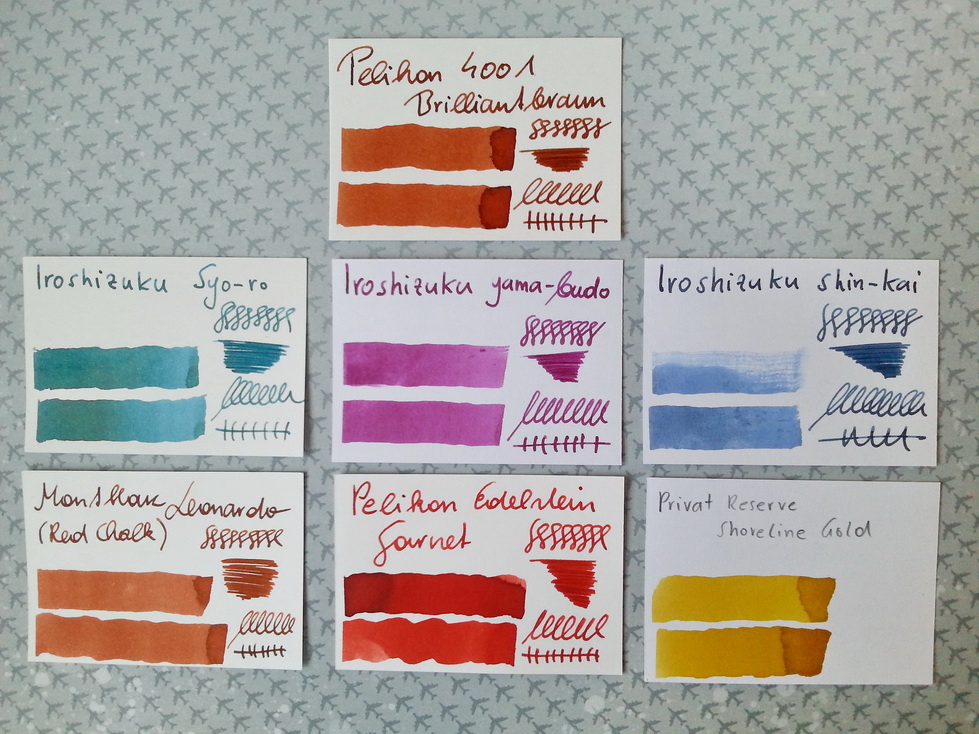 Pelikan 4001
Brilliantbraun
Iroshizuku Syo-ro
Iroshizuku yama-budo
Iroshizuku shin-kai
Montblanc Leonardo
(Red Chalk)
Pelikan Edelstein
Garnet
Privat Reserve
Shoreline Gold